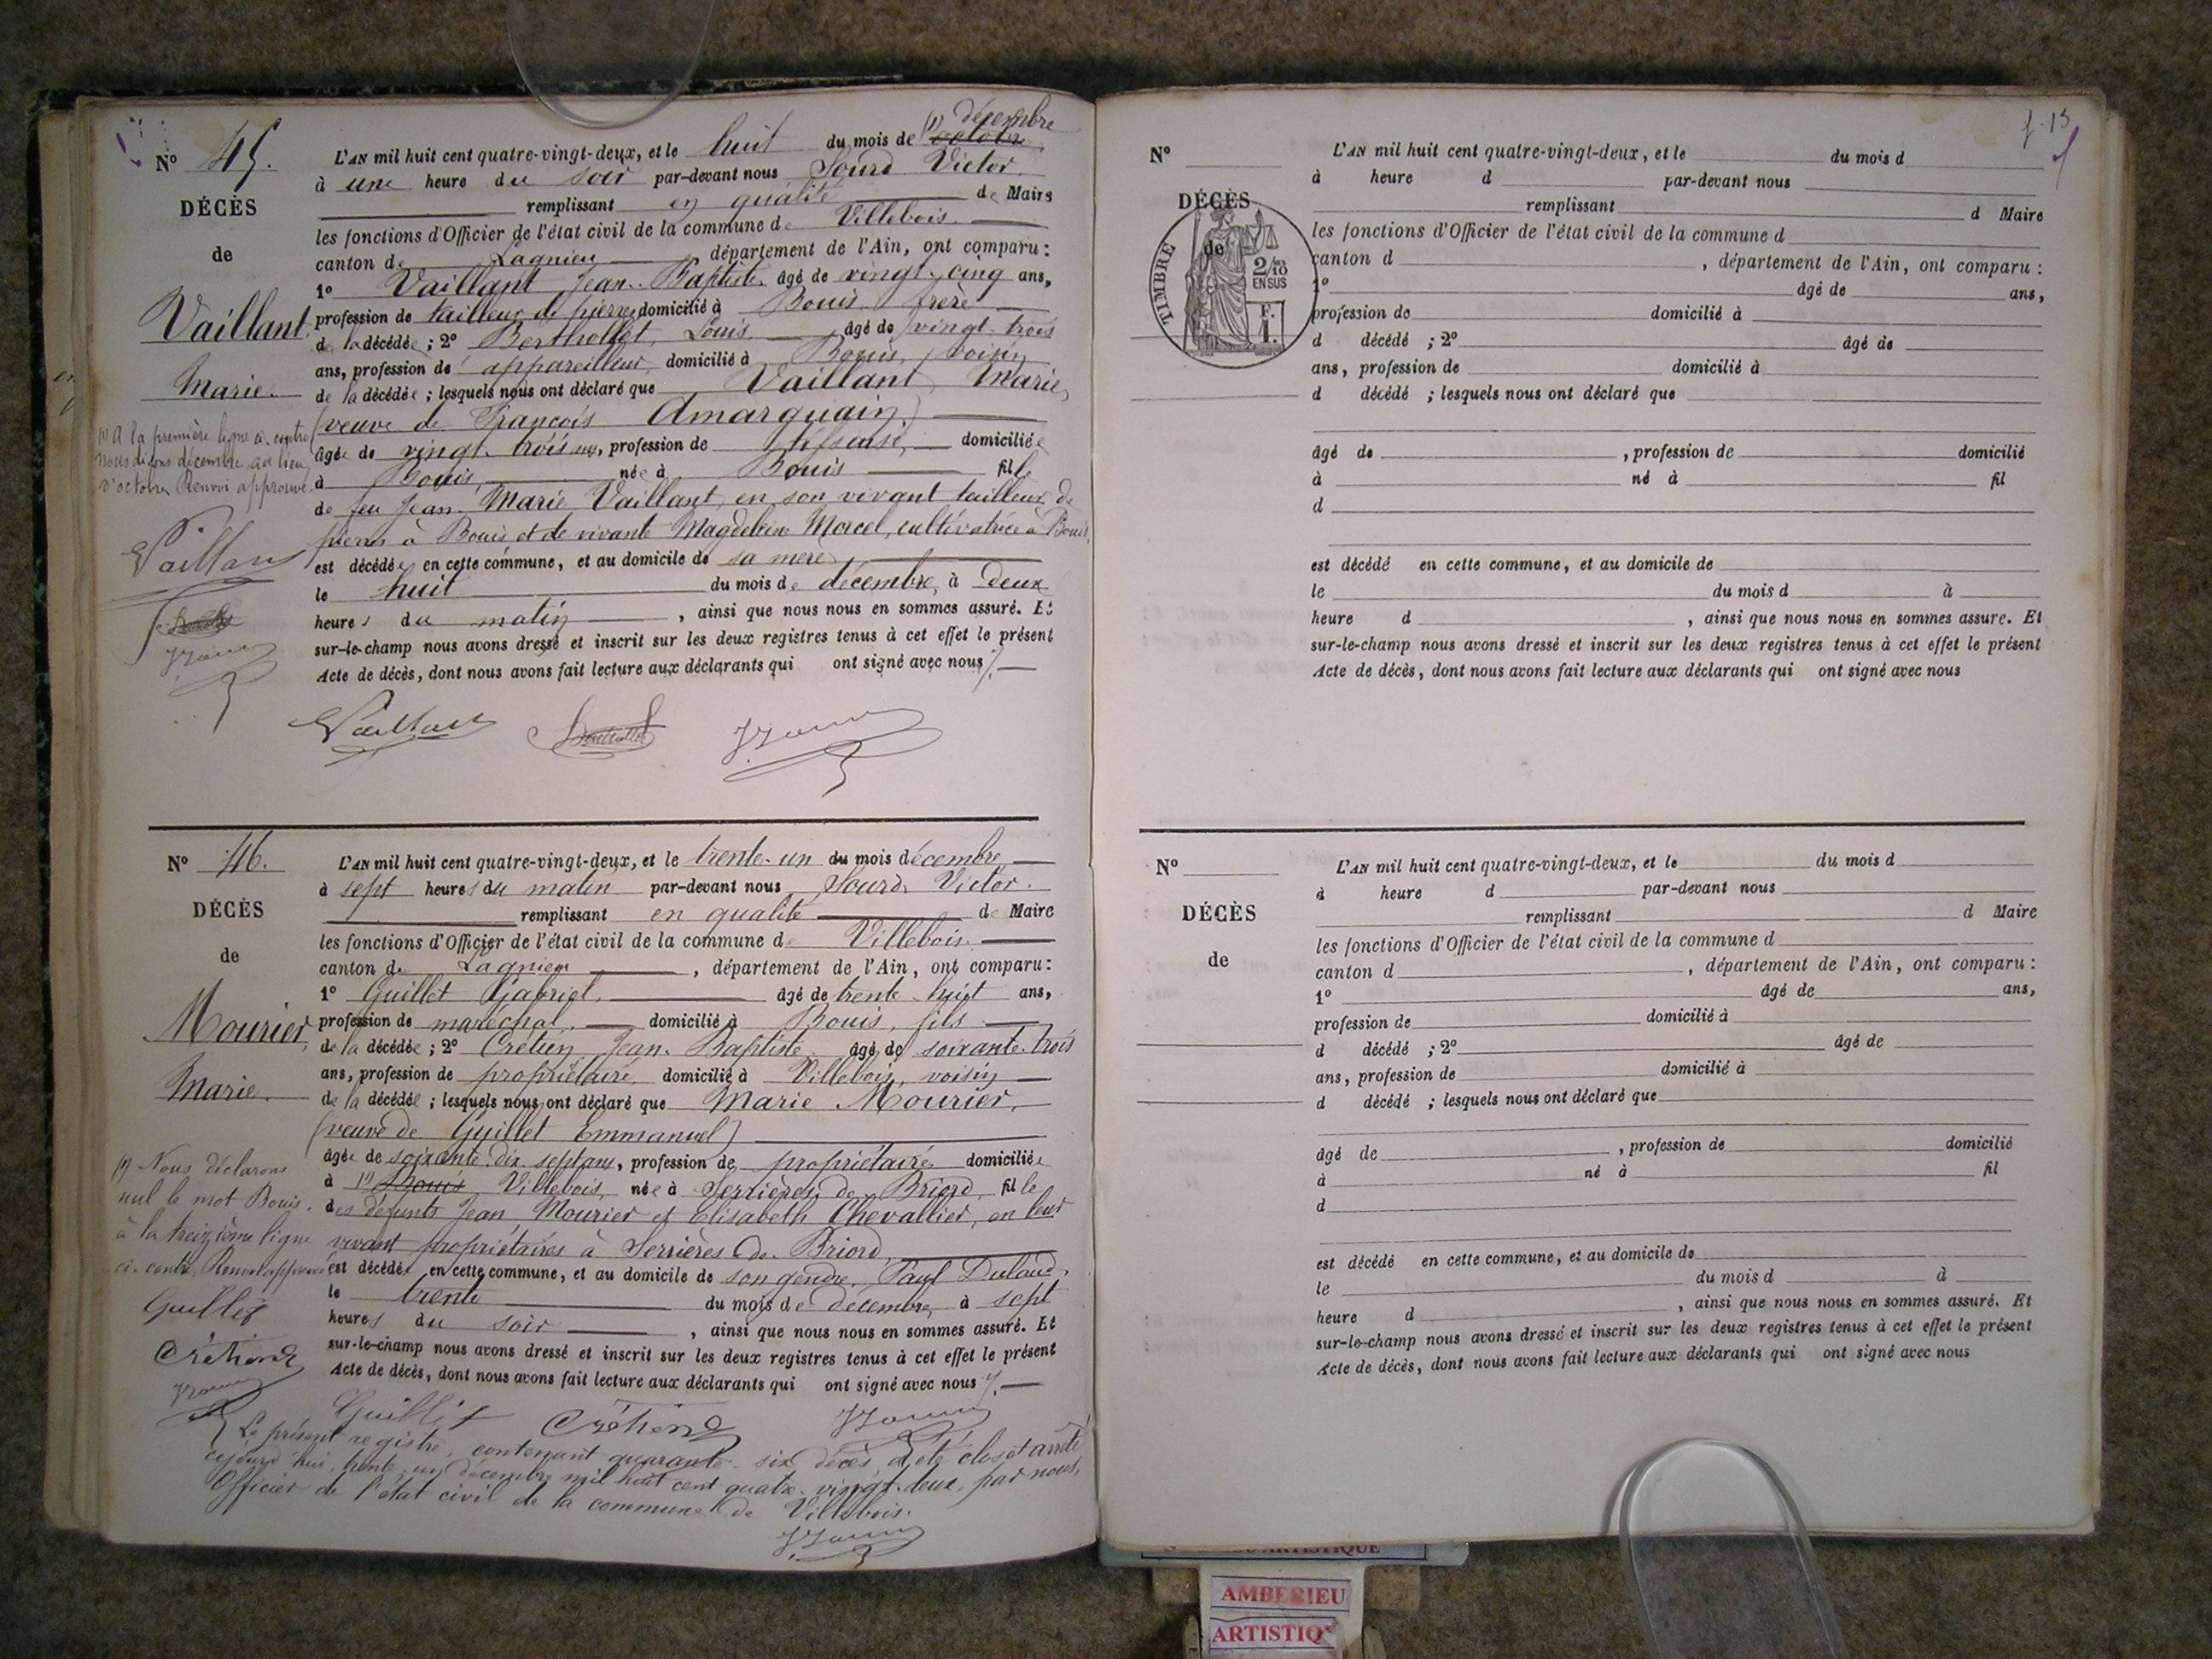 N° 45.
DÉCÈS
de
Vaillant
Marie.
(1) A la première ligne ci-contre
nous disons décembre au lieu
d'octobre Renvoi approuvé.
Vaillant
L'AN mil huit cent quatre-vingt-deux, et le huit du mois de (1) décembre octobre
à une heure du soir par-devant nous Sourd Victor.
remplissant en qualité de Maire
les fonctions d'Officier de l'état civil de la commune de Villebois
canton de Lagnieu département de l'Ain, ont comparu :
1° Vaillant Jean-Baptiste, âgé de vingt-cinq ans,
profession de tailleur de pierre, domicilié à Bouis, frère
de la décédée ; 2° Berthollet, Louis, âgé de vingt-trois
ans, profession de appareilleur, domicilié à Bouis, voisin
de la décédée ; lesquels nous ont déclaré que Vaillant Marie,
(veuve de François Amarguain)
âgée de vingt-trois ans, profession de domiciliée
à Bouis, née à Bouis fille
de feu Jean-Marie Vaillant, en son vivant tailleur de
pierre à Bouis et de vivante Magdeleine Morcel, cultivatrice à Bouis,
est décédée en cette commune, et au domicile de sa mère
le huit du mois de décembre, à deux
heures du matin, ainsi que nous nous en sommes assuré. Et
sur-le-champ nous avons dressé et inscrit sur les deux registres tenus à cet effet le présent
Acte de décès, dont nous avons fait lecture aux déclarants qui ont signé avec nous
Vaillant Berthollet
N° 46.
DÉCÈS
de
Mourier
Marie.
(1) Nous déclarons
nul le mot Bouis.
à la treizième ligne
ci-contre, Renvoi approuvé
Guillet
Crétien
L'AN mil huit cent quatre-vingt-deux, et le trente-un du mois décembre
à sept heures du matin par-devant nous Sourd Victor.
remplissant en qualité de Maire
les fonctions d'Officier de l'état civil de la commune de Villebois
canton de Lagnieu, département de l'Ain, ont comparu :
1° Guillet Gabriel, âgé de trente-huit ans,
profession de maréchal, domicilié à Bouis, fils
de la décédée ; 2° Crétien Jean-Baptiste, âgé de soixante-trois
ans, profession de propriétaire, domicilié à Villebois, voisin
de la décédée ; lesquels nous ont déclaré que Marie Mourier,
(veuve de Guillet Emmanuel)
âgée de soixante-dix-sept ans, profession de propriétaire domiciliée
à (1) Bouis Villebois, née à Serrières-de-Briord, fille
des défunts Jean Mourier et Elisabeth Chevallier, en leur
vivant propriétaires à Serrières-de-Briord,
est décédée en cette commune, et au domicile de son gendre, Paul Dulaud,
le trente du mois de décembre, à sept
heures du soir, ainsi que nous nous en sommes assuré. Et
sur-le-champ nous avons dressé et inscrit sur les deux registres tenus à cet effet le présent
Acte de décès, dont nous avons fait lecture aux déclarants qui ont signé avec nous
Guillet Crétien
Le présent registre, contenant quarante-six décès a été clos et arrêté
cejourd'hui, trente-un décembre mil huit cent quatre-vingt-deux, par nous,
Officier de l'état civil de la commune de Villebois.
f. 13
N°
DÉCÈS
de
TIMBRE
2/10
EN SUS
F.
1.
L'AN mil huit cent quatre-vingt-deux, et le du mois d
à heure d par-devant nous
remplissant d Maire
les fonctions d'Officier de l'état civil de la commune d
canton d , département de l'Ain, ont comparu :
1° âgé de ans,
profession de domicilié à
d décédé ; 2° âgé de
ans, profession de domicilié à
d décédé ; lesquels nous ont déclaré que
âgé de , profession de domicilié
à né à fil
d
est décédé en cette commune, et au domicile de
le du mois d à
heure d , ainsi que nous nous en sommes assuré. Et
sur-le-champ nous avons dressé et inscrit sur les deux registres tenus à cet effet le présent
Acte de décès, dont nous avons fait lecture aux déclarants qui ont signé avec nous
N°
DÉCÈS
de
L'AN mil huit cent quatre-vingt-deux, et le du mois d
à heure d par-devant nous
remplissant d Maire
les fonctions d'Officier de l'état civil de la commune d
canton d , département de l'Ain, ont comparu :
1° âgé de ans,
profession de domicilié à
d décédé ; 2° âgé de
ans, profession de domicilié à
d décédé ; lesquels nous ont déclaré que
âgé de , profession de domicilié
à né à fil
d
est décédé en cette commune, et au domicile de
le du mois d à
heure d , ainsi que nous nous en sommes assuré. Et
sur-le-champ nous avons dressé et inscrit sur les deux registres tenus à cet effet le présent
Acte de décès, dont nous avons fait lecture aux déclarants qui ont signé avec nous
ARTISTIQUE
AMBERIEU
ARTISTIQ